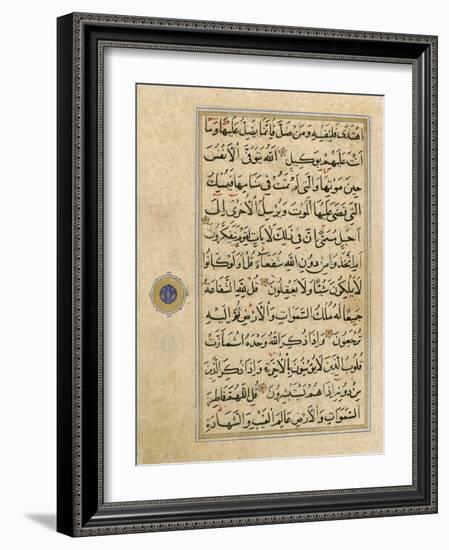 اهتدى فلنفسه ومن ضل فإنما يضل عليها وما
أنت عليهم بوكيل الله يتوفى الأنفس
حين موتها والتي لم تمت في منامها فيمسك
التي قضى عليها الموت ويرسل الأخرى إلى
أجل مسمى إن في ذلك لآيات لقوم يتفكرون
أم اتخذوا من دون الله شفعاء قل أولو كانوا
لا يملكون شيئا ولا يعقلون قل لله الشفاعة
جميعا له ملك السموات والأرض ثم إليه
ترجعون وإذا ذكر الله وحده اشمأزت
قلوب الذين لا يؤمنون بالآخرة وإذا ذكر الذين
من دونه إذا هم يستبشرون قل اللهم فاطر
السموات والأرض عالم الغيب والشهادة